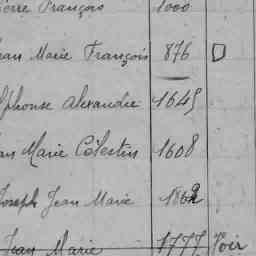 ierre François 1000
ean Marie François 876
lphonse Alexandre 1645
an Marie Célestin 1608
Joseph Jean Marie 1862
Jean Marie 1777 Voir